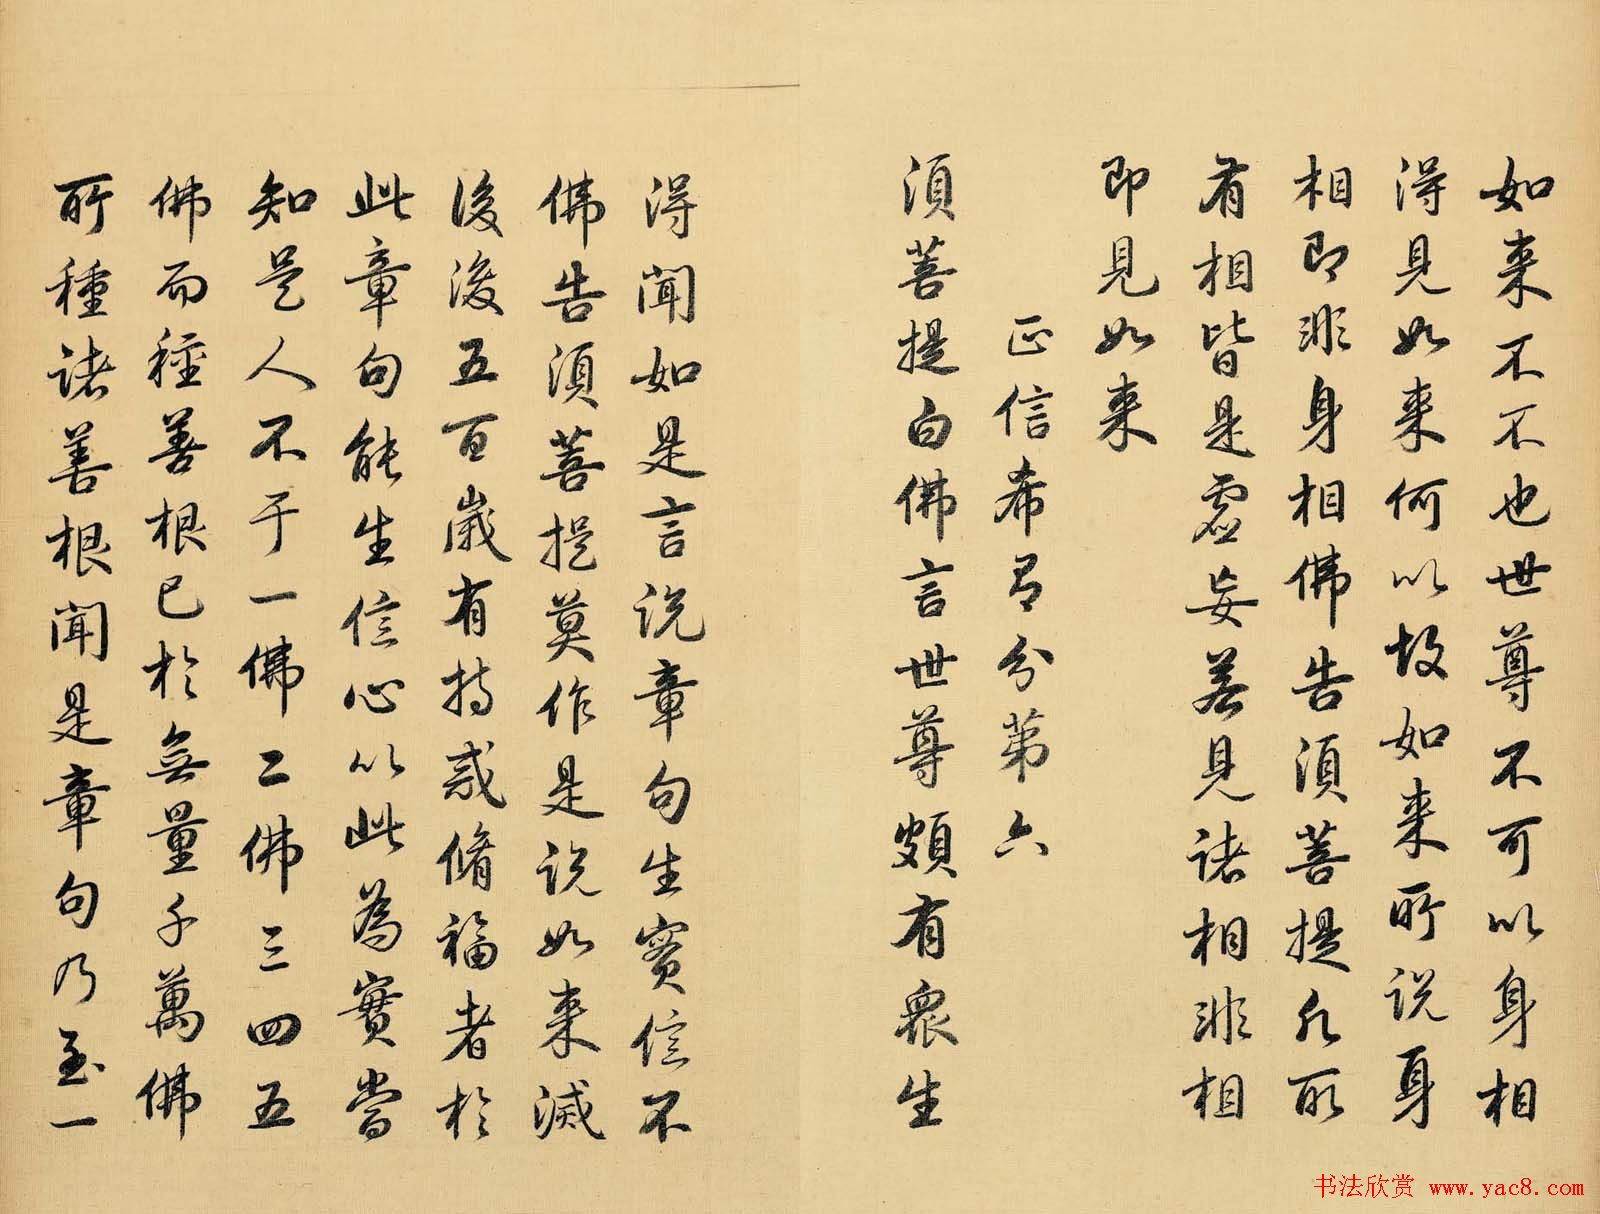 如来不不也世尊不可以身相
得見如来何以故如来所說身
相即非身相佛告須菩提凡所
有相皆是虚妄若見諸相非相
即見如来
正信希有分第六
須菩提白佛言世尊頗有衆生
得聞如是言說章句生實信不
佛告須菩提莫作是說如来滅
後後五百歲有持戒脩福者於
此章句能生信心以此為實當
知是人不于一佛二佛三四五
佛而種善根已於無量千萬佛
所種諸善根聞是章句乃至一
书法欣赏 www.yac8.com